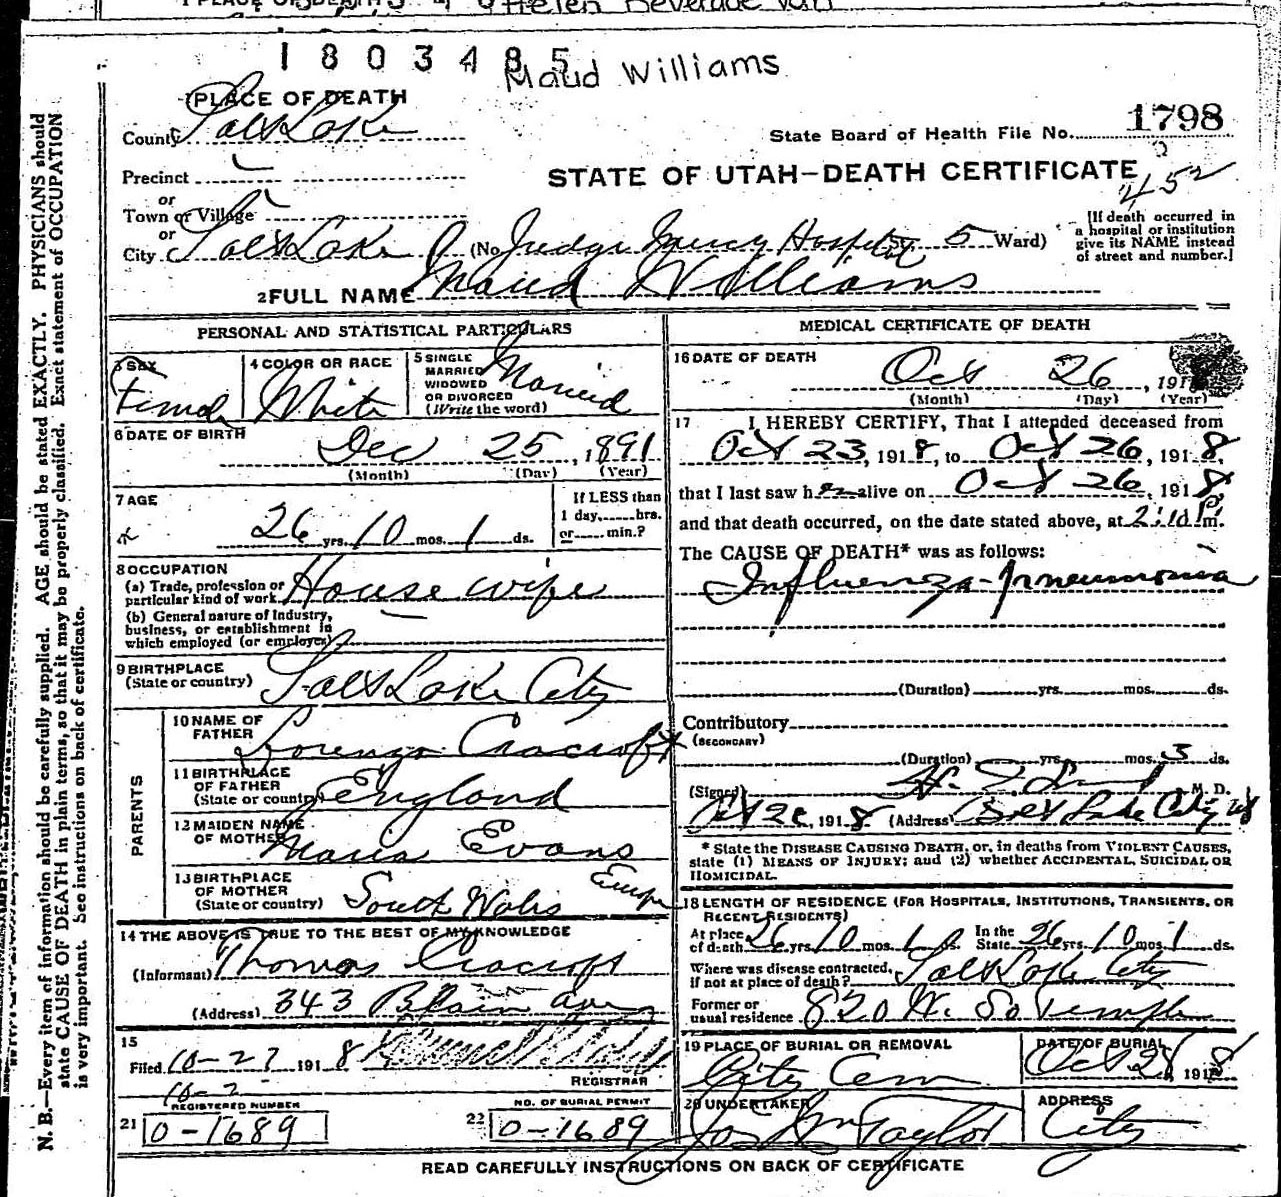 Helen Beverage
1803485
Maud Williams
1 PLACE OF DEATH
County Salt Lake
State Board of Health File No. 1798
Precinct
STATE OF UTAH—DEATH CERTIFICATE
452
or
Town or Village
or
City Salt Lake (No. Judge Mercy Hospital 5 Ward)
[If death occurred in
a hospital or institution
give its NAME instead
of street and number.]
2 FULL NAME Maud Williams
PERSONAL AND STATISTICAL PARTICULARS
3 SEX
Female
4 COLOR OR RACE
White
5 SINGLE
MARRIED
WIDOWED
OR DIVORCED
(Write the word)
Married
6 DATE OF BIRTH
Dec 25, 1891
(Month) (Day) (Year)
7 AGE
26 yrs. 10 mos. 1 ds.
If LESS than
1 day, hrs.
or min.?
8 OCCUPATION
(a) Trade, profession or
particular kind of work House wife
(b) General nature of Industry,
business, or establishment in
which employed (or employer)
9 BIRTHPLACE
(State or country) Salt Lake City
PARENTS
10 NAME OF
FATHER Lorenzo Cracroft
11 BIRTHPLACE
OF FATHER
(State or country) England
12 MAIDEN NAME
OF MOTHER Maria Evans
13 BIRTHPLACE
OF MOTHER
(State or country) South Wales
14 THE ABOVE IS TRUE TO THE BEST OF MY KNOWLEDGE
(Informant) Thomas Cracroft
(Address) 343 Blain ave
15
Filed 10-27 1918
REGISTRAR
10-2
REGISTERED NUMBER
21 0-1689
NO. OF BURIAL PERMIT
22 0-1689
MEDICAL CERTIFICATE OF DEATH
16 DATE OF DEATH
Oct 26, 191
(Month) (Day) (Year)
17 I HEREBY CERTIFY, That I attended deceased from
Oct 23, 1918, to Oct 26, 1918,
that I last saw her alive on Oct 26, 1918
and that death occurred, on the date stated above, at 2:10 P m.
The CAUSE OF DEATH* was as follows:
Influenza-Pneumonia
(Duration) yrs. mos. ds.
Contributory
(SECONDARY)
(Duration) yrs. mos. 3 ds.
(Signed) M. D.
Oct 1918 (Address) Salt Lake City
* State the DISEASE CAUSING DEATH, or, in deaths from VIOLENT CAUSES,
state (1) MEANS OF INJURY; and (2) whether ACCIDENTAL, SUICIDAL OR
HOMICIDAL.
18 LENGTH OF RESIDENCE (FOR HOSPITALS, INSTITUTIONS, TRANSIENTS, OR
RECENT RESIDENTS)
At place
of death 26 yrs 10 mos. 1 ds. In the
State 26 yrs. 10 mos 1 ds.
Where was disease contracted,
if not at place of death? Salt Lake City
Former or
usual residence 820 W. So Temple
19 PLACE OF BURIAL OR REMOVAL
City Cem
DATE OF BURIAL
Oct 28 1918
20 UNDERTAKER
Jos Wm Taylor
ADDRESS
City
READ CAREFULLY INSTRUCTIONS ON BACK OF CERTIFICATE
N. B.—Every item of information should be carefully supplied. AGE should be stated EXACTLY. PHYSICIANS should
state CAUSE OF DEATH in plain terms, so that it may be properly classified. Exact statement of OCCUPATION
is very important. See instructions on back of certificate.